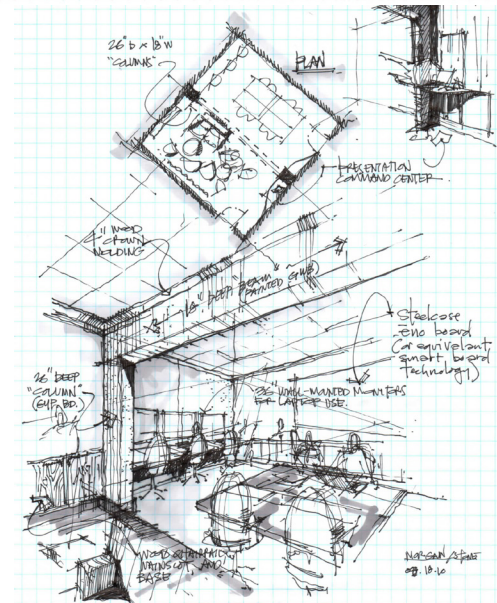 26" D x 18" W
"COLUMNS"
PLAN
PRESENTATION
COMMAND CENTER
4" WOOD
CROWN
MOLDING
18" DEEP "BEAM"
(PAINTED GWB)
Steelcase
eno board
(or equivalent
smart board
technology)
26" DEEP
"COLUMN"
(GYP. BD.)
36" WALL-MOUNTED MONITORS
FOR LAPTOP USE.
WOOD CHAIRRAIL,
WAINSCOT, AND
BASE